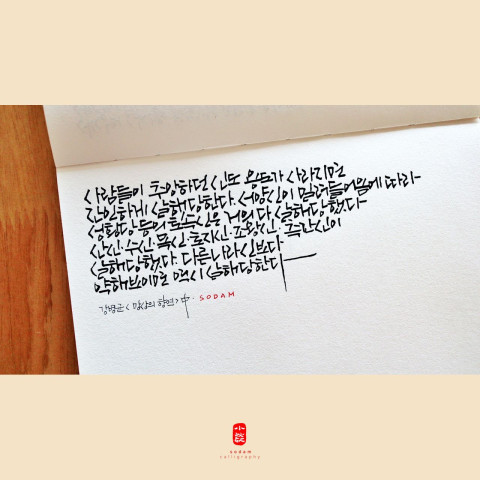 사람들이 추앙하던 신도 용도가 사라지면
잔인하게 살해당한다. 서양신이 밀려들어옴에 따라
성황당 등의 토속신은 거의 다 살해당했다
산신·수신·목신·호랑신·조왕신·측간신이
살해당했다. 다른나라신보다
약해보이면 역시 살해당한다
강병균 <망상의 향연> 中 · SODAM
小談
sodam
calligraphy